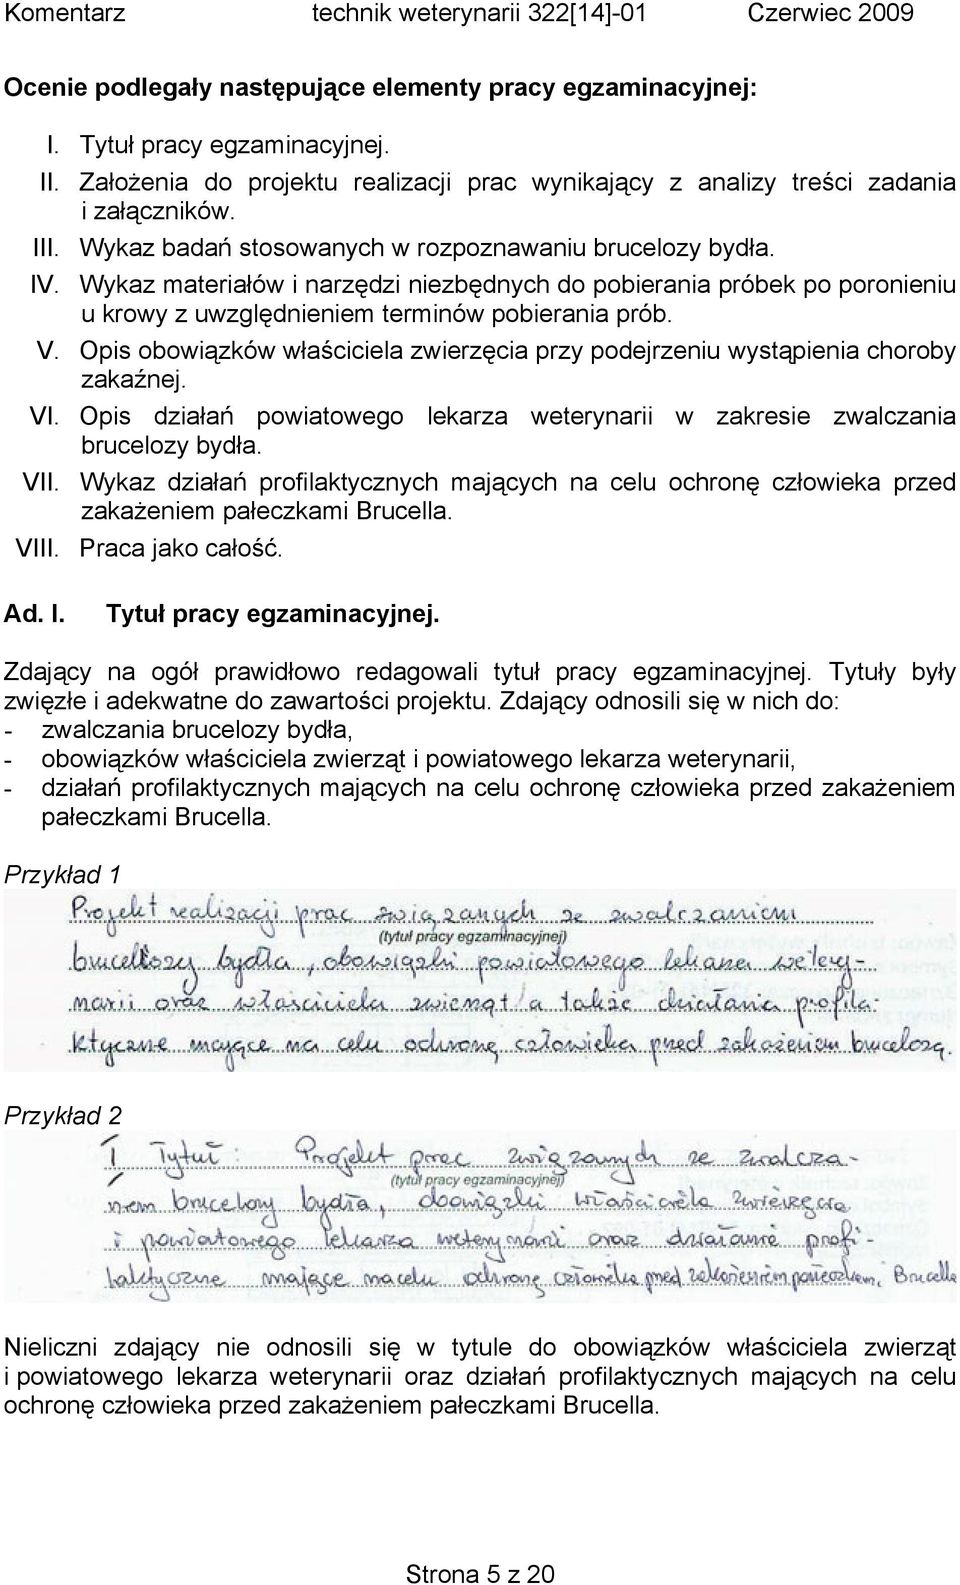 Komentarz technik weterynarii 322[14]-01 Czerwiec 2009
Ocenie podlegały następujące elementy pracy egzaminacyjnej:
I. Tytuł pracy egzaminacyjnej.
II. Założenia do projektu realizacji prac wynikający z analizy treści zadania
i załączników.
III. Wykaz badań stosowanych w rozpoznawaniu brucelozy bydła.
IV. Wykaz materiałów i narzędzi niezbędnych do pobierania próbek po poronieniu
u krowy z uwzględnieniem terminów pobierania prób.
V. Opis obowiązków właściciela zwierzęcia przy podejrzeniu wystąpienia choroby
zakaźnej.
VI. Opis działań powiatowego lekarza weterynarii w zakresie zwalczania
brucelozy bydła.
VII. Wykaz działań profilaktycznych mających na celu ochronę człowieka przed
zakażeniem pałeczkami Brucella.
VIII. Praca jako całość.
Ad. I. Tytuł pracy egzaminacyjnej.
Zdający na ogół prawidłowo redagowali tytuł pracy egzaminacyjnej. Tytuły były
zwięzłe i adekwatne do zawartości projektu. Zdający odnosili się w nich do:
- zwalczania brucelozy bydła,
- obowiązków właściciela zwierząt i powiatowego lekarza weterynarii,
- działań profilaktycznych mających na celu ochronę człowieka przed zakażeniem
pałeczkami Brucella.
Przykład 1
Projekt realizacji prac związanych ze zwalczaniem
(tytuł pracy egzaminacyjnej)
brucellozy bydła, obowiązki powiatowego lekarza weter­y-
narii oraz właściciela zwierząt a także działania profila-
ktyczne mające na celu ochronę człowieka przed zakażeniem brucelozą.
Przykład 2
I Tytuł: Projekt prac związanych ze zwalcza-
(tytuł pracy egzaminacyjnej)
niem brucelozy bydła, obowiązki właściciela zwierzęcia
i powiatowego lekarza weterynarii oraz działanie profi-
laktyczne mające na celu ochronę człowieka przed zakażeniem Brucella
Nieliczni zdający nie odnosili się w tytule do obowiązków właściciela zwierząt
i powiatowego lekarza weterynarii oraz działań profilaktycznych mających na celu
ochronę człowieka przed zakażeniem pałeczkami Brucella.
Strona 5 z 20